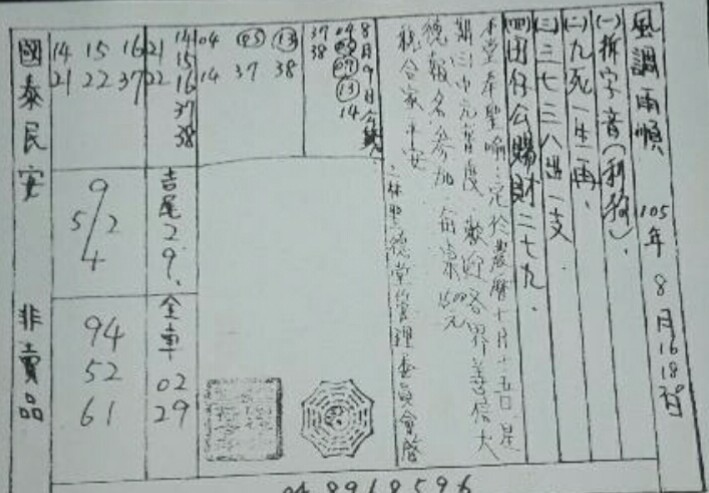 風調雨順 105年8月16 18初
(一)拆字音(利狗).
(二)九死一生再.
(三)三七三八出一支.
(四)田仔公賜財二七九.
本堂奉聖喻:定於農曆七月十五日星
期三中元普度 歡迎各界善信大
德報名參加
祝合家平安
二林聖德堂管理委員會啓
8月9日
04 05 07 13 14
37 38
04 05 13
14 37 38
14 15 16 37 38
21 22
14 15 16
21 22 37
吉尾29.
9
5/2
4
全車 02 29
94
52
61
國泰民安 非賣品
04 8968596